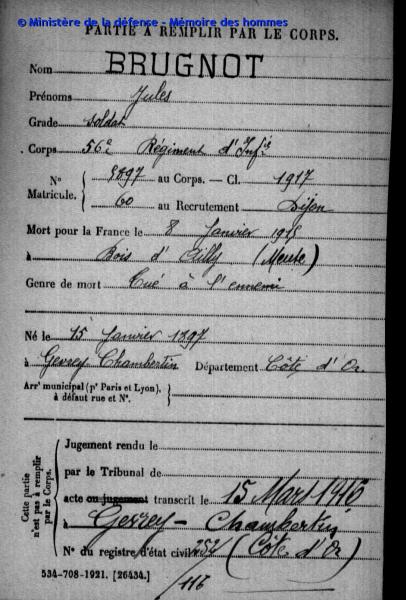 © Ministère de la défense - Mémoire des hommes
PARTIE À REMPLIR PAR LE CORPS.
Nom BRUGNOT
Prénoms Jules
Grade soldat
Corps 56e Régiment d'Inf.ie
N° Matricule. { 8897 au Corps. — Cl. 1917
60 au Recrutement Dijon
Mort pour la France le 8 Janvier 1915
à Bois d'Ailly (Meuse)
Genre de mort Tué à l'ennemi
Né le 15 Janvier 1897
à Gevrey-Chambertin Département Côte d'Or
Arrt municipal (pr Paris et Lyon), à défaut rue et N°.
Cette partie n'est pas à remplir par le Corps.
Jugement rendu le
par le Tribunal de
acte ou jugement transcrit le 15 Mars 1916
à Gevrey-Chambertin
N° du registre d'état civil 252 (Côte d'Or)
534-708-1921. [26434.]
/116